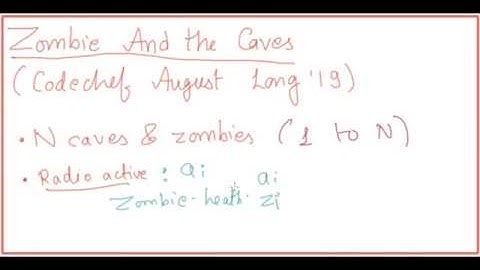 Zombie And the Caves
(Codechef, August Long '19)
• N caves & zombies (1 to N)
• Radio active : ai ai
Zombie-heath. zi